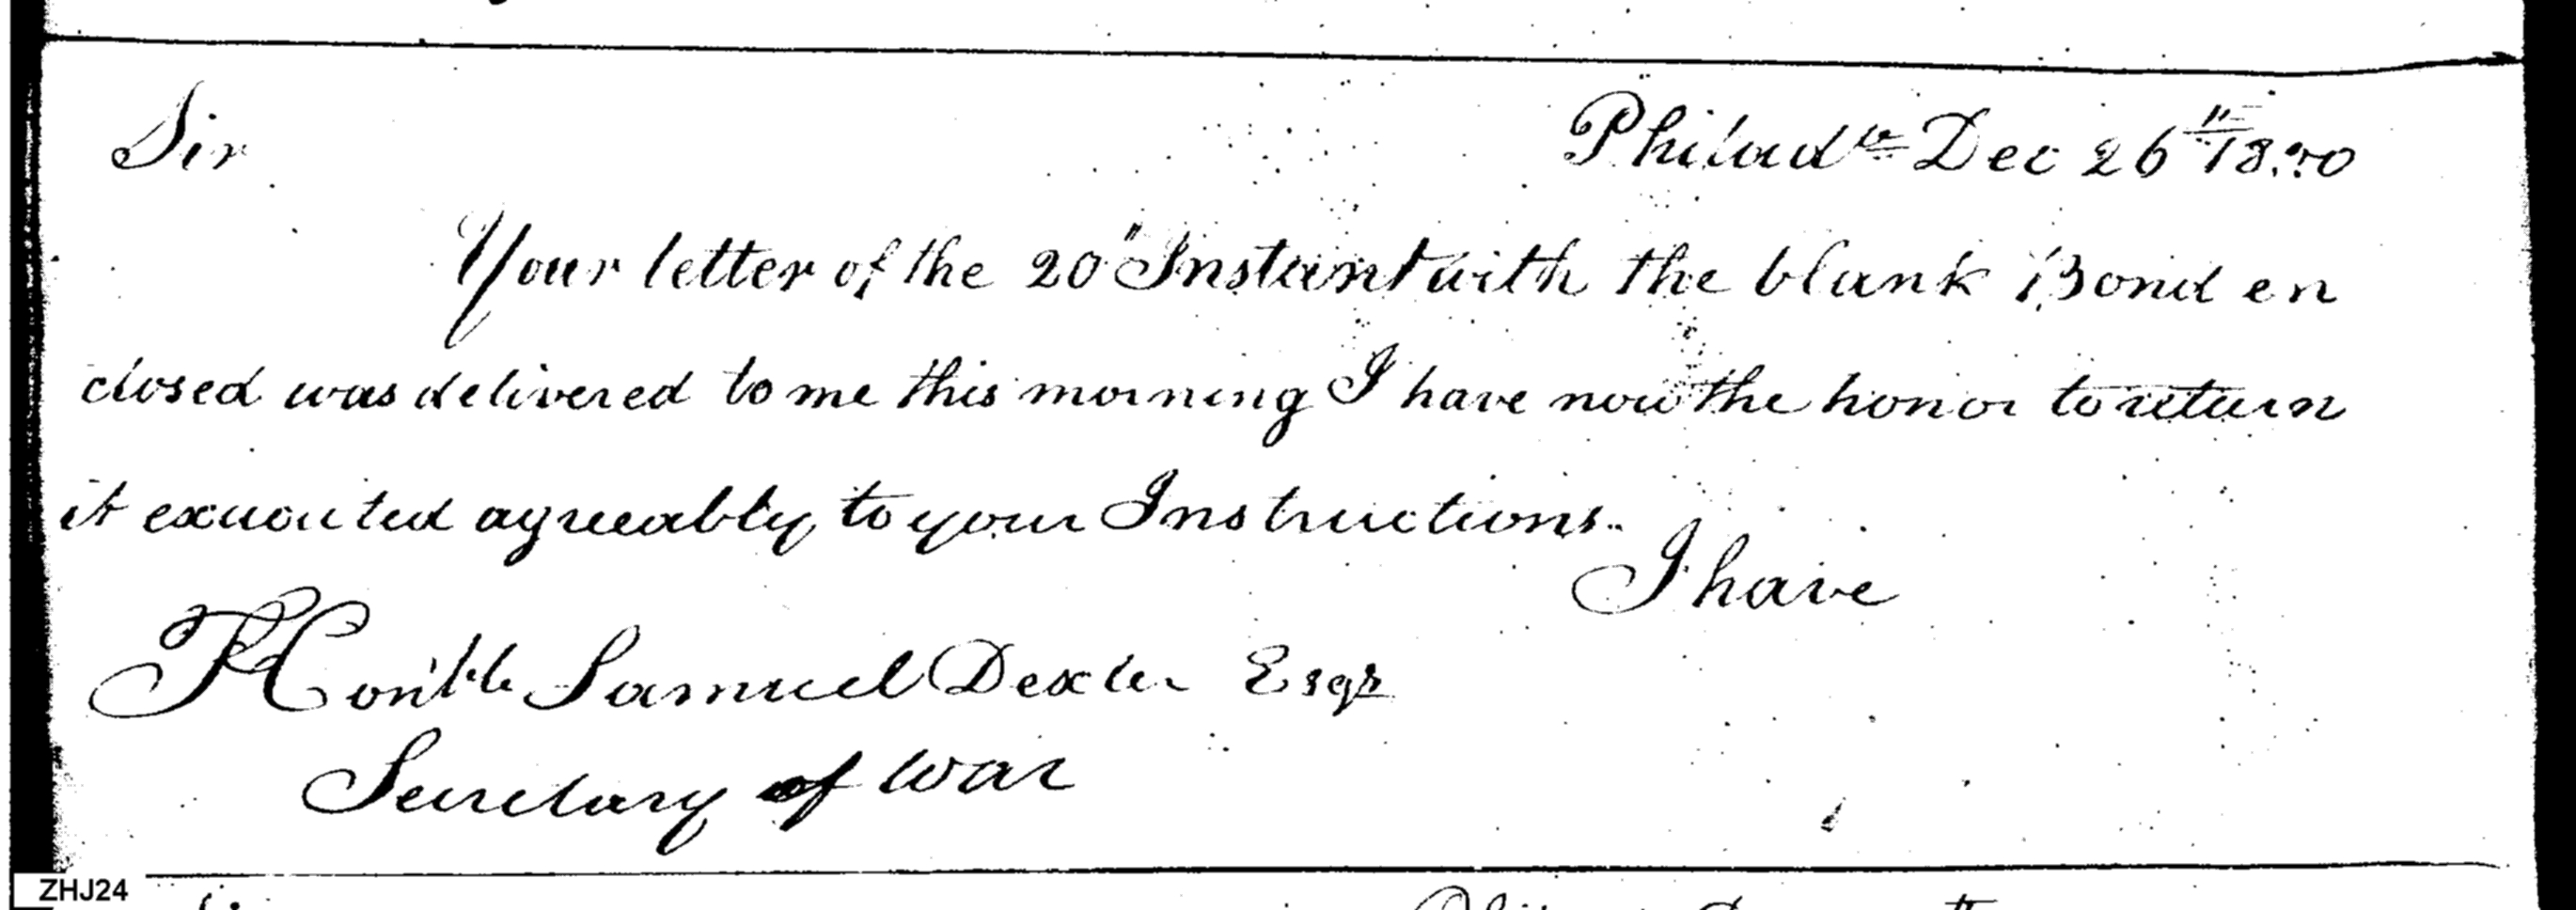 Sir
Philad.ia Dec 26" 1800
Your letter of the 20" Instant with the blank Bond en
closed was delivered to me this morning I have now the honor to return
it executed agreeably to your Instructions.
I have
Hon'ble Samuel Dexter Esqr
Secretary of War
ZHJ24